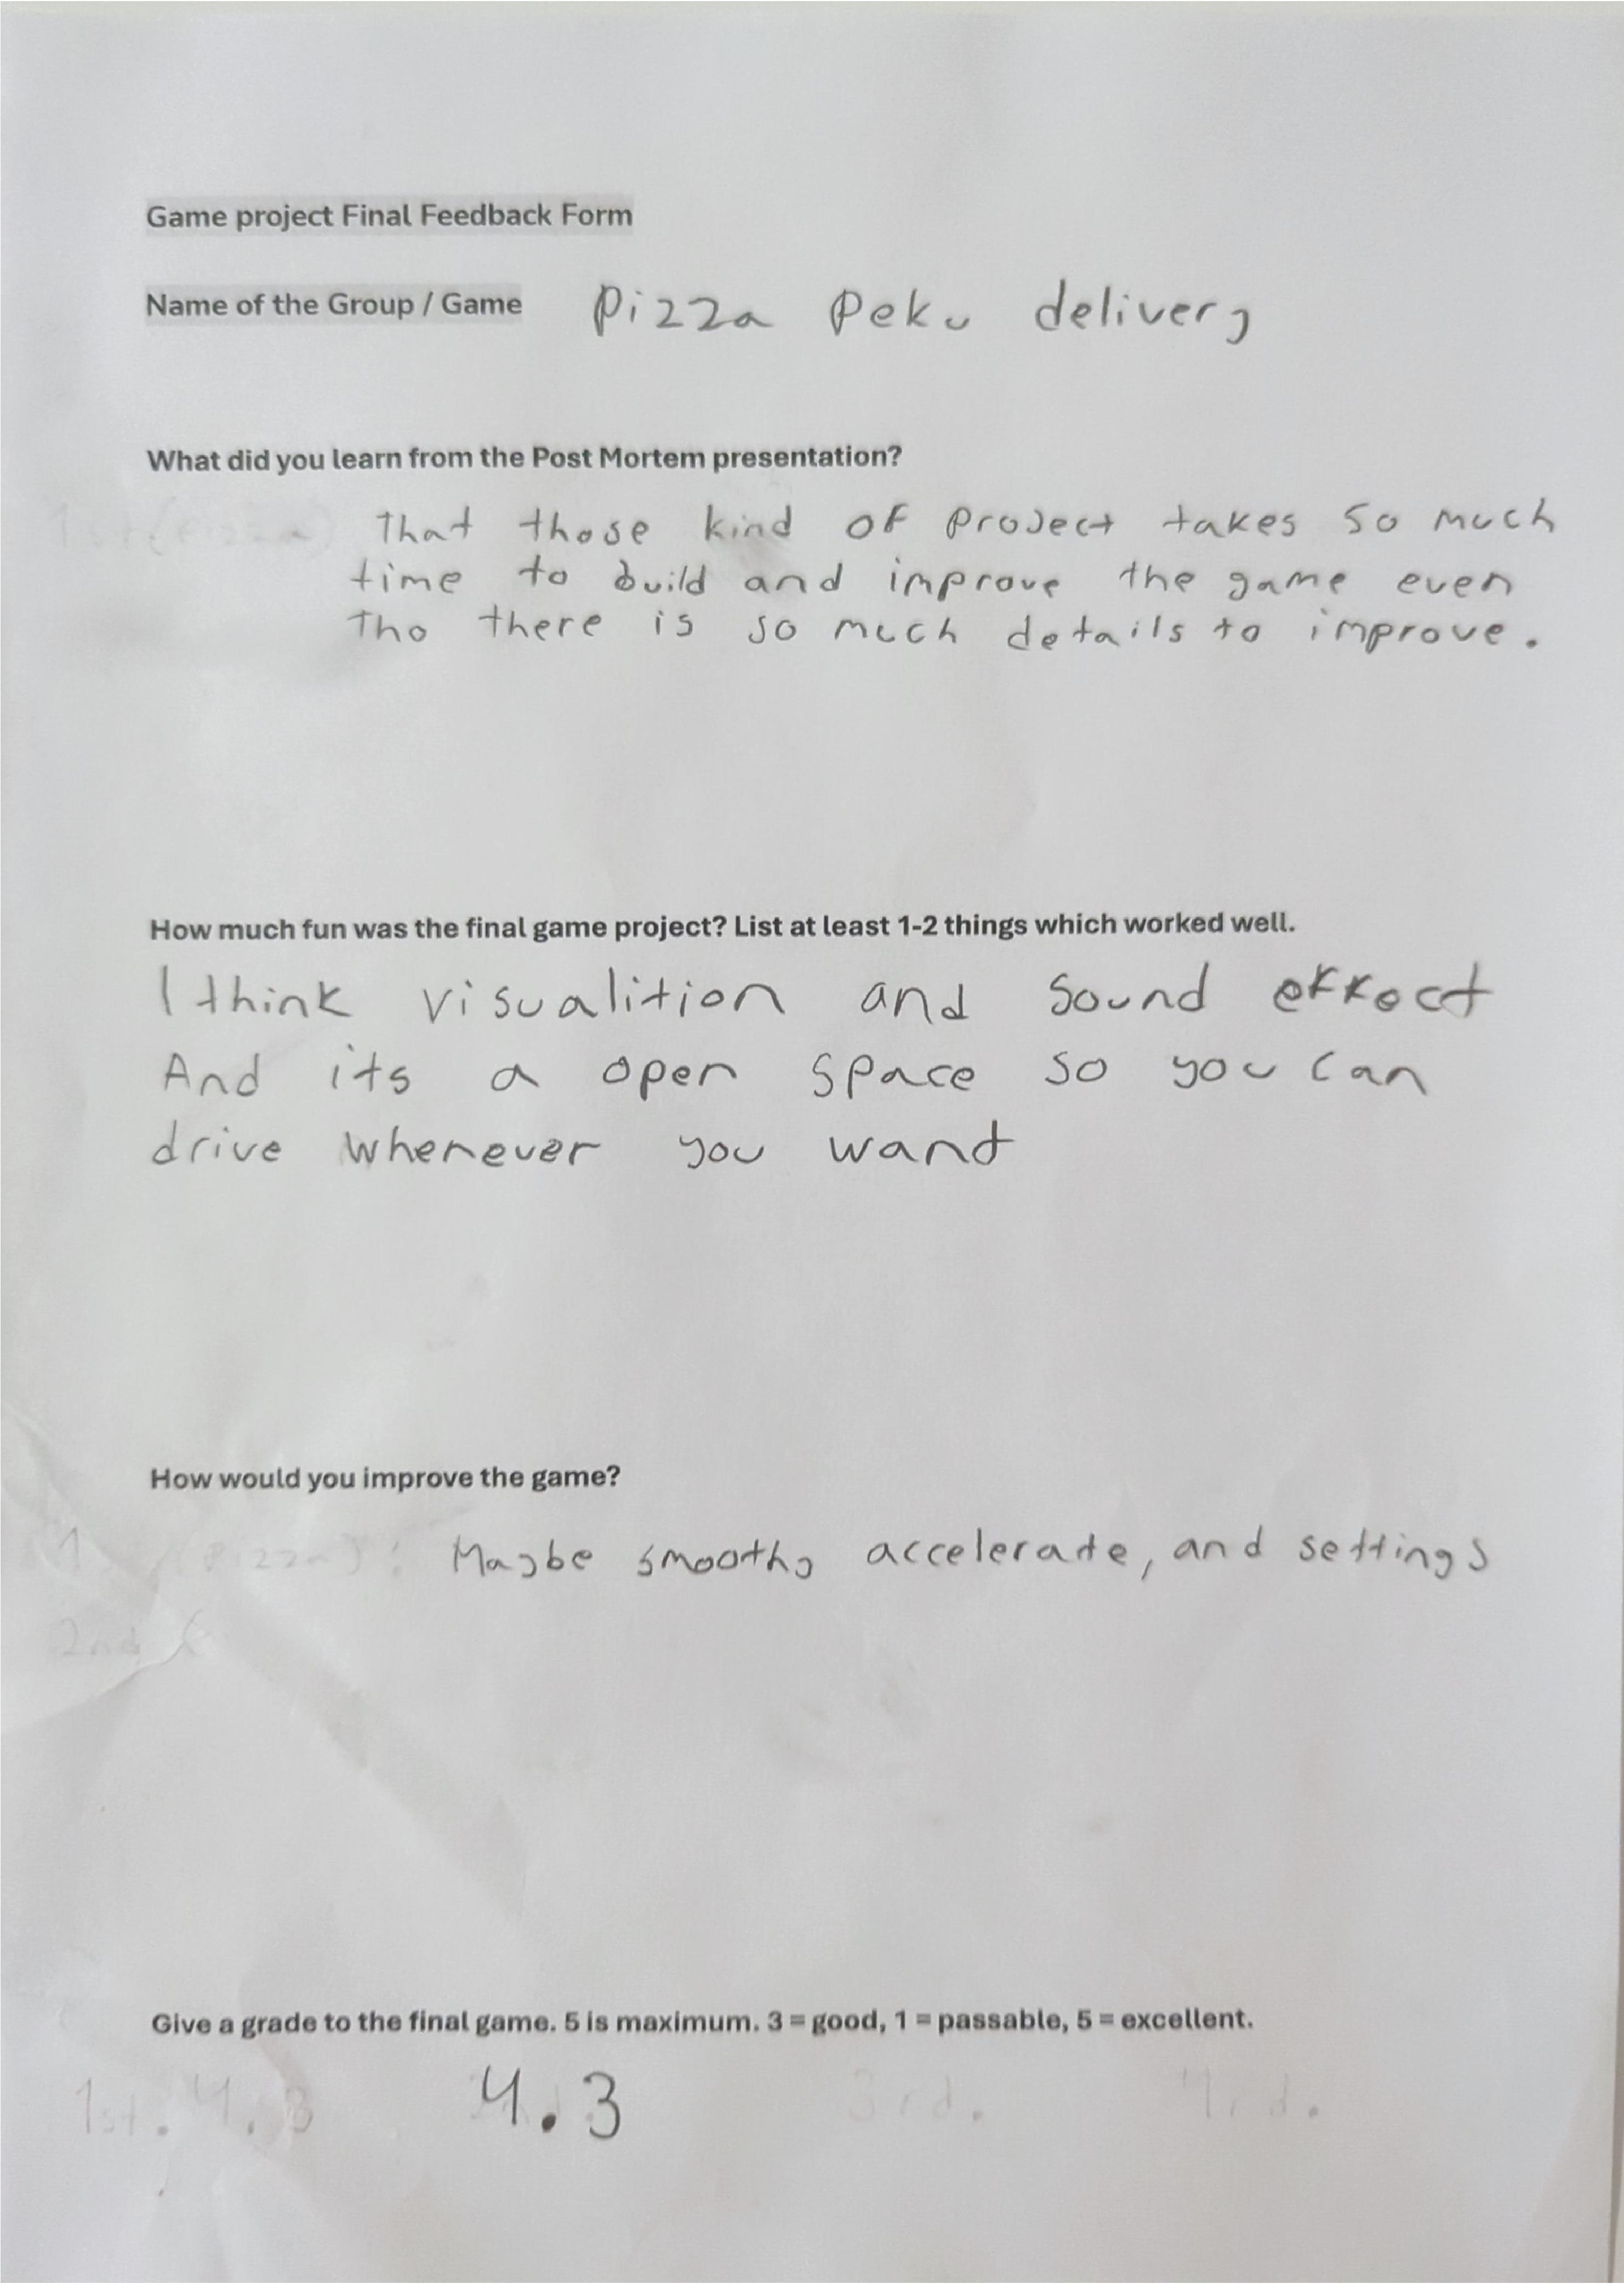 Game project Final Feedback Form
Name of the Group / Game Pizza Peku delivery
What did you learn from the Post Mortem presentation?
That those kind of project takes so much
time to build and improve the game even
Tho there is so much details to improve.
How much fun was the final game project? List at least 1-2 things which worked well.
I think visualition and sound effect
And its a open space so you can
drive whenever you want
How would you improve the game?
Maybe smoothy accelerate, and settings
2nd
Give a grade to the final game. 5 is maximum. 3 = good, 1 = passable, 5 = excellent.
1st. 4.3 4.3 3rd. 4rd.